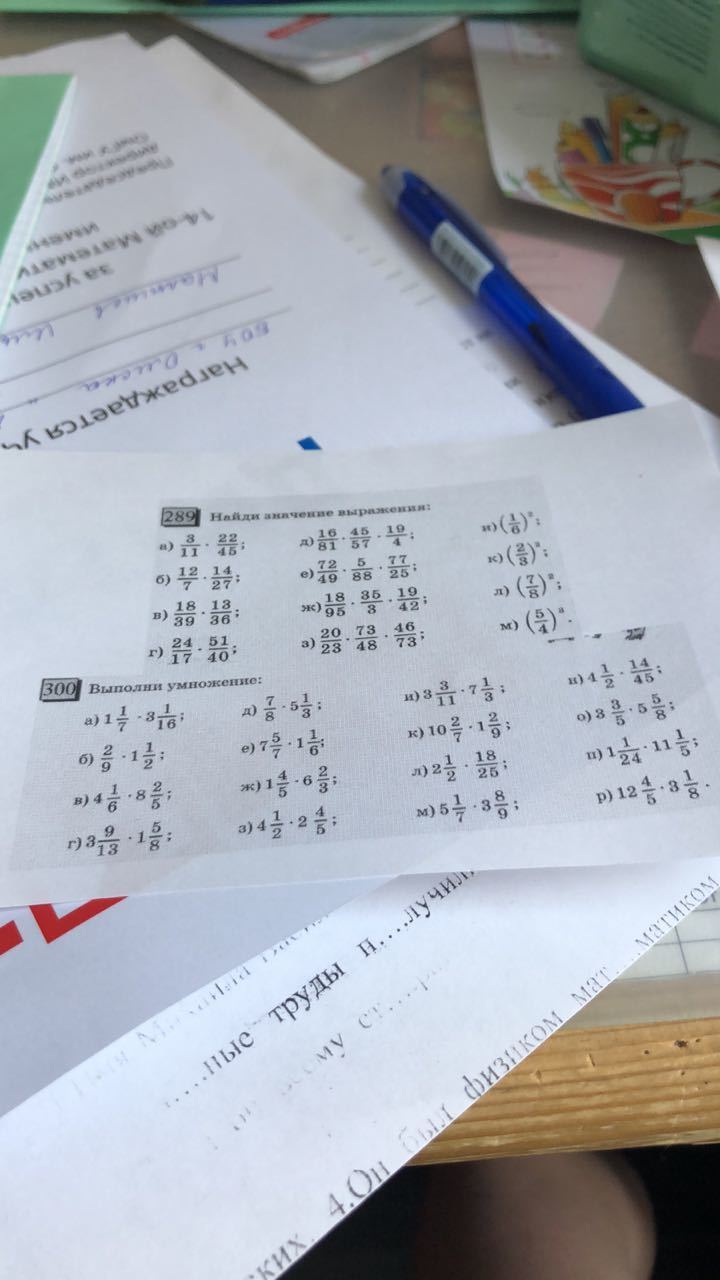 Председатель
директор
14-ой Математи
имени
за успе
Малышев
БОУ г. Омска
Награждается
289 Найди значение выражения:
а) 3/11 · 22/45;
б) 12/7 · 14/27;
в) 18/39 · 13/36;
г) 24/17 · 51/40;
д) 16/81 · 45/57 · 19/4;
е) 72/49 · 5/88 · 77/25;
ж) 18/95 · 35/3 · 19/42;
з) 20/23 · 73/48 · 46/73;
и) (1/6)²;
к) (2/3)³;
л) (7/8)²;
м) (5/4)³.
300 Выполни умножение:
а) 1 1/7 · 3 1/16;
б) 2/9 · 1 1/2;
в) 4 1/6 · 8 2/5;
г) 3 9/13 · 1 5/8;
д) 7/8 · 5 1/3;
е) 7 5/7 · 1 1/6;
ж) 1 4/5 · 6 2/3;
з) 4 1/2 · 2 4/5;
и) 3 3/11 · 7 1/3;
к) 10 2/7 · 1 2/9;
л) 2 1/2 · 18/25;
м) 5 1/7 · 3 8/9;
н) 4 1/2 · 14/45;
о) 3 3/5 · 5 5/8;
п) 1 1/24 · 11 1/5;
р) 12 4/5 · 3 1/8.
....ные труды п....лучил
ому ст....
ских. 4.Он был физиком мат...матиком